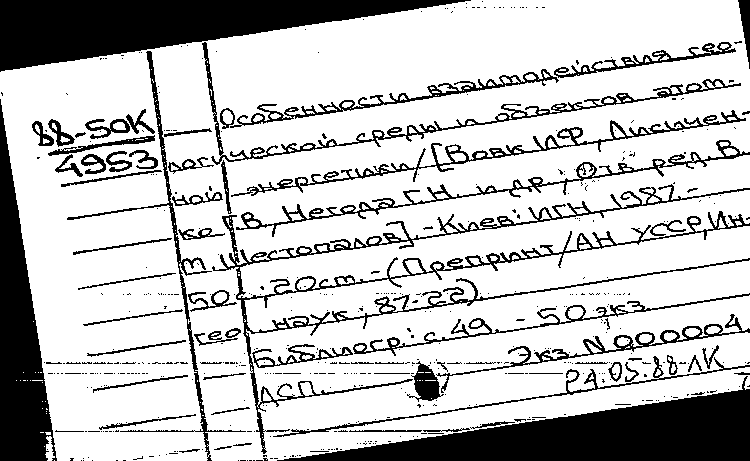 88-50К
4953
Особенности взаимодействия гео-
логической среды и объектов атом-
ной энергетики/[Вовк И.Ф., Лисичен-
ко Г.В., Негода Г.Н. и др.; Отв. ред. В.
М. Шестопалов].-Киев: ИГН, 1987.-
50с.; 20см. -(Препринт/АН УССР, Ин-т
геол. наук; 87-22).
Библиогр.: с.49. - 50 экз.
Экз. N 000004
ДСП.
P4.05.88-ЛК